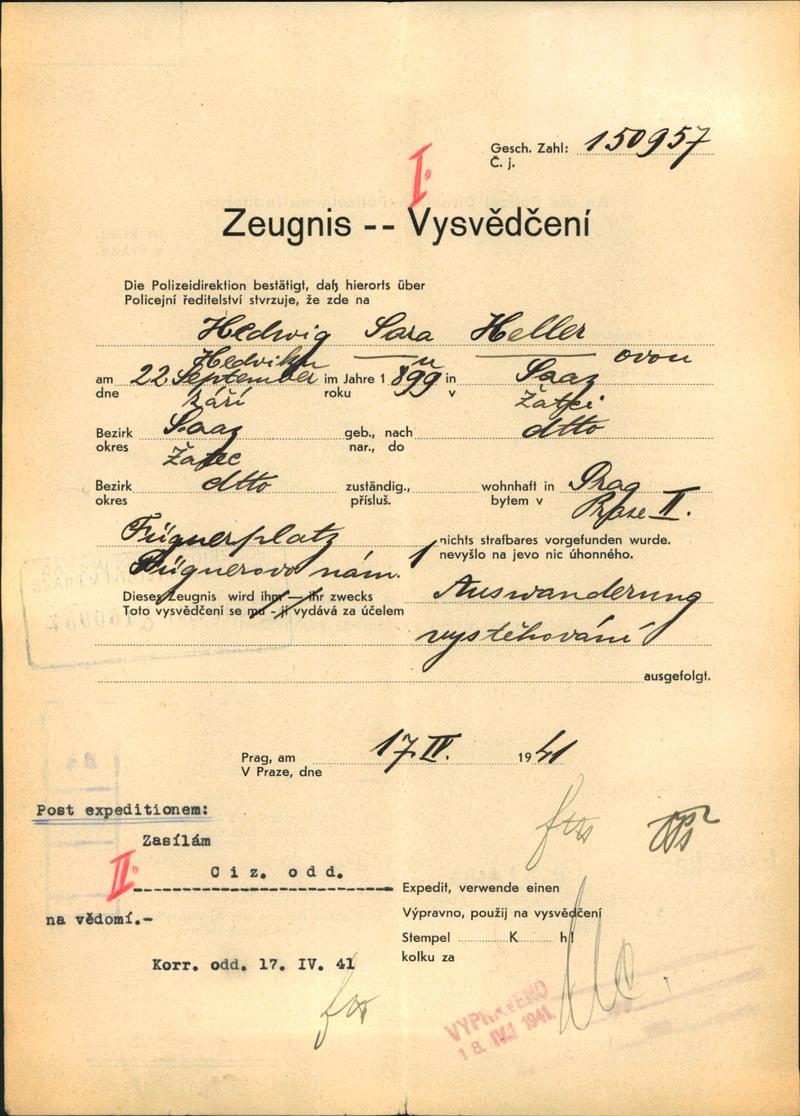 Gesch. Zahl: 150957
Č. j.
I.
Zeugnis -- Vysvědčení
Die Polizeidirektion bestätigt, daß hierorts über
Policejní ředitelství stvrzuje, že zde na
Hedwig Sara Heller
Hedviku ovou
am 22. September im Jahre 1899 in Saaz
dne září roku v Žatci
Bezirk Saaz geb., nach dtto
okres Žatec nar., do
Bezirk dtto zuständig., wohnhaft in Prag
okres přísluš. bytem v Praze II.
Fügnerplatz nichts strafbares vorgefunden wurde.
Fügnerovo nám. nevyšlo na jevo nic úhonného.
Dieses Zeugnis wird ihm — ihr zwecks Auswanderung
Toto vysvědčení se mu - jí vydává za účelem
vystěhování
ausgefolgt.
Prag, am 17. IV. 1941
V Praze, dne
Post expeditionem:
Zasílám
II.
Ciz. odd.
na vědomí.-
Korr. odd. 17. IV. 41
Expedit, verwende einen
Výpravno, použij na vysvědčení
Stempel K h!
kolku za
VYPRAVENO
18. IV. 1941